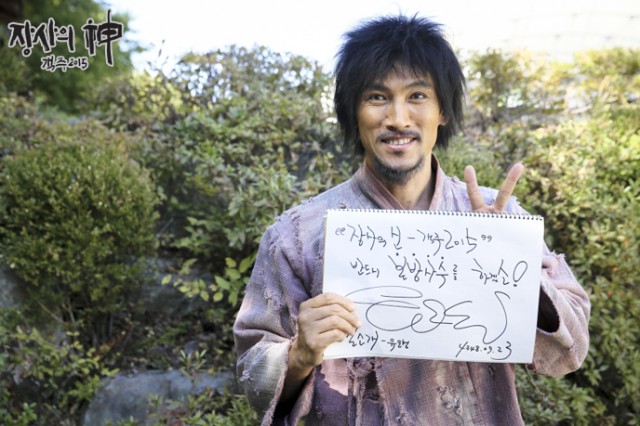 장사의 神
객주2015
"장사의 신-객주2015"
반드시 본방사수를 하겠소!
길소개-유오성
4348.09.23